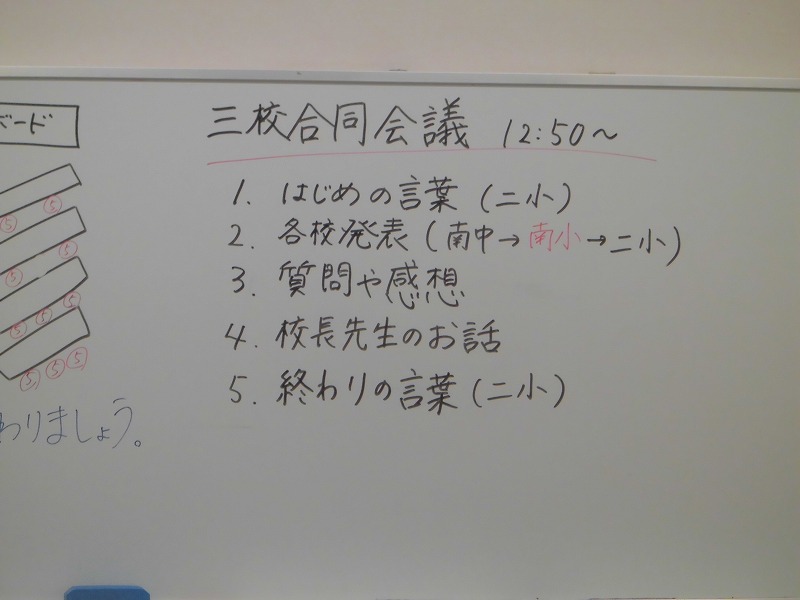 ボード
三校合同会議 12:50～
1. はじめの言葉 (二小)
2. 各校発表 (南中→南小→二小)
3. 質問や感想
4. 校長先生のお話
5. 終わりの言葉 (二小)
⑤ ⑤
⑤
⑤
⑤ ⑤ ⑤
⑤ ⑤ ⑤
わりましょう。